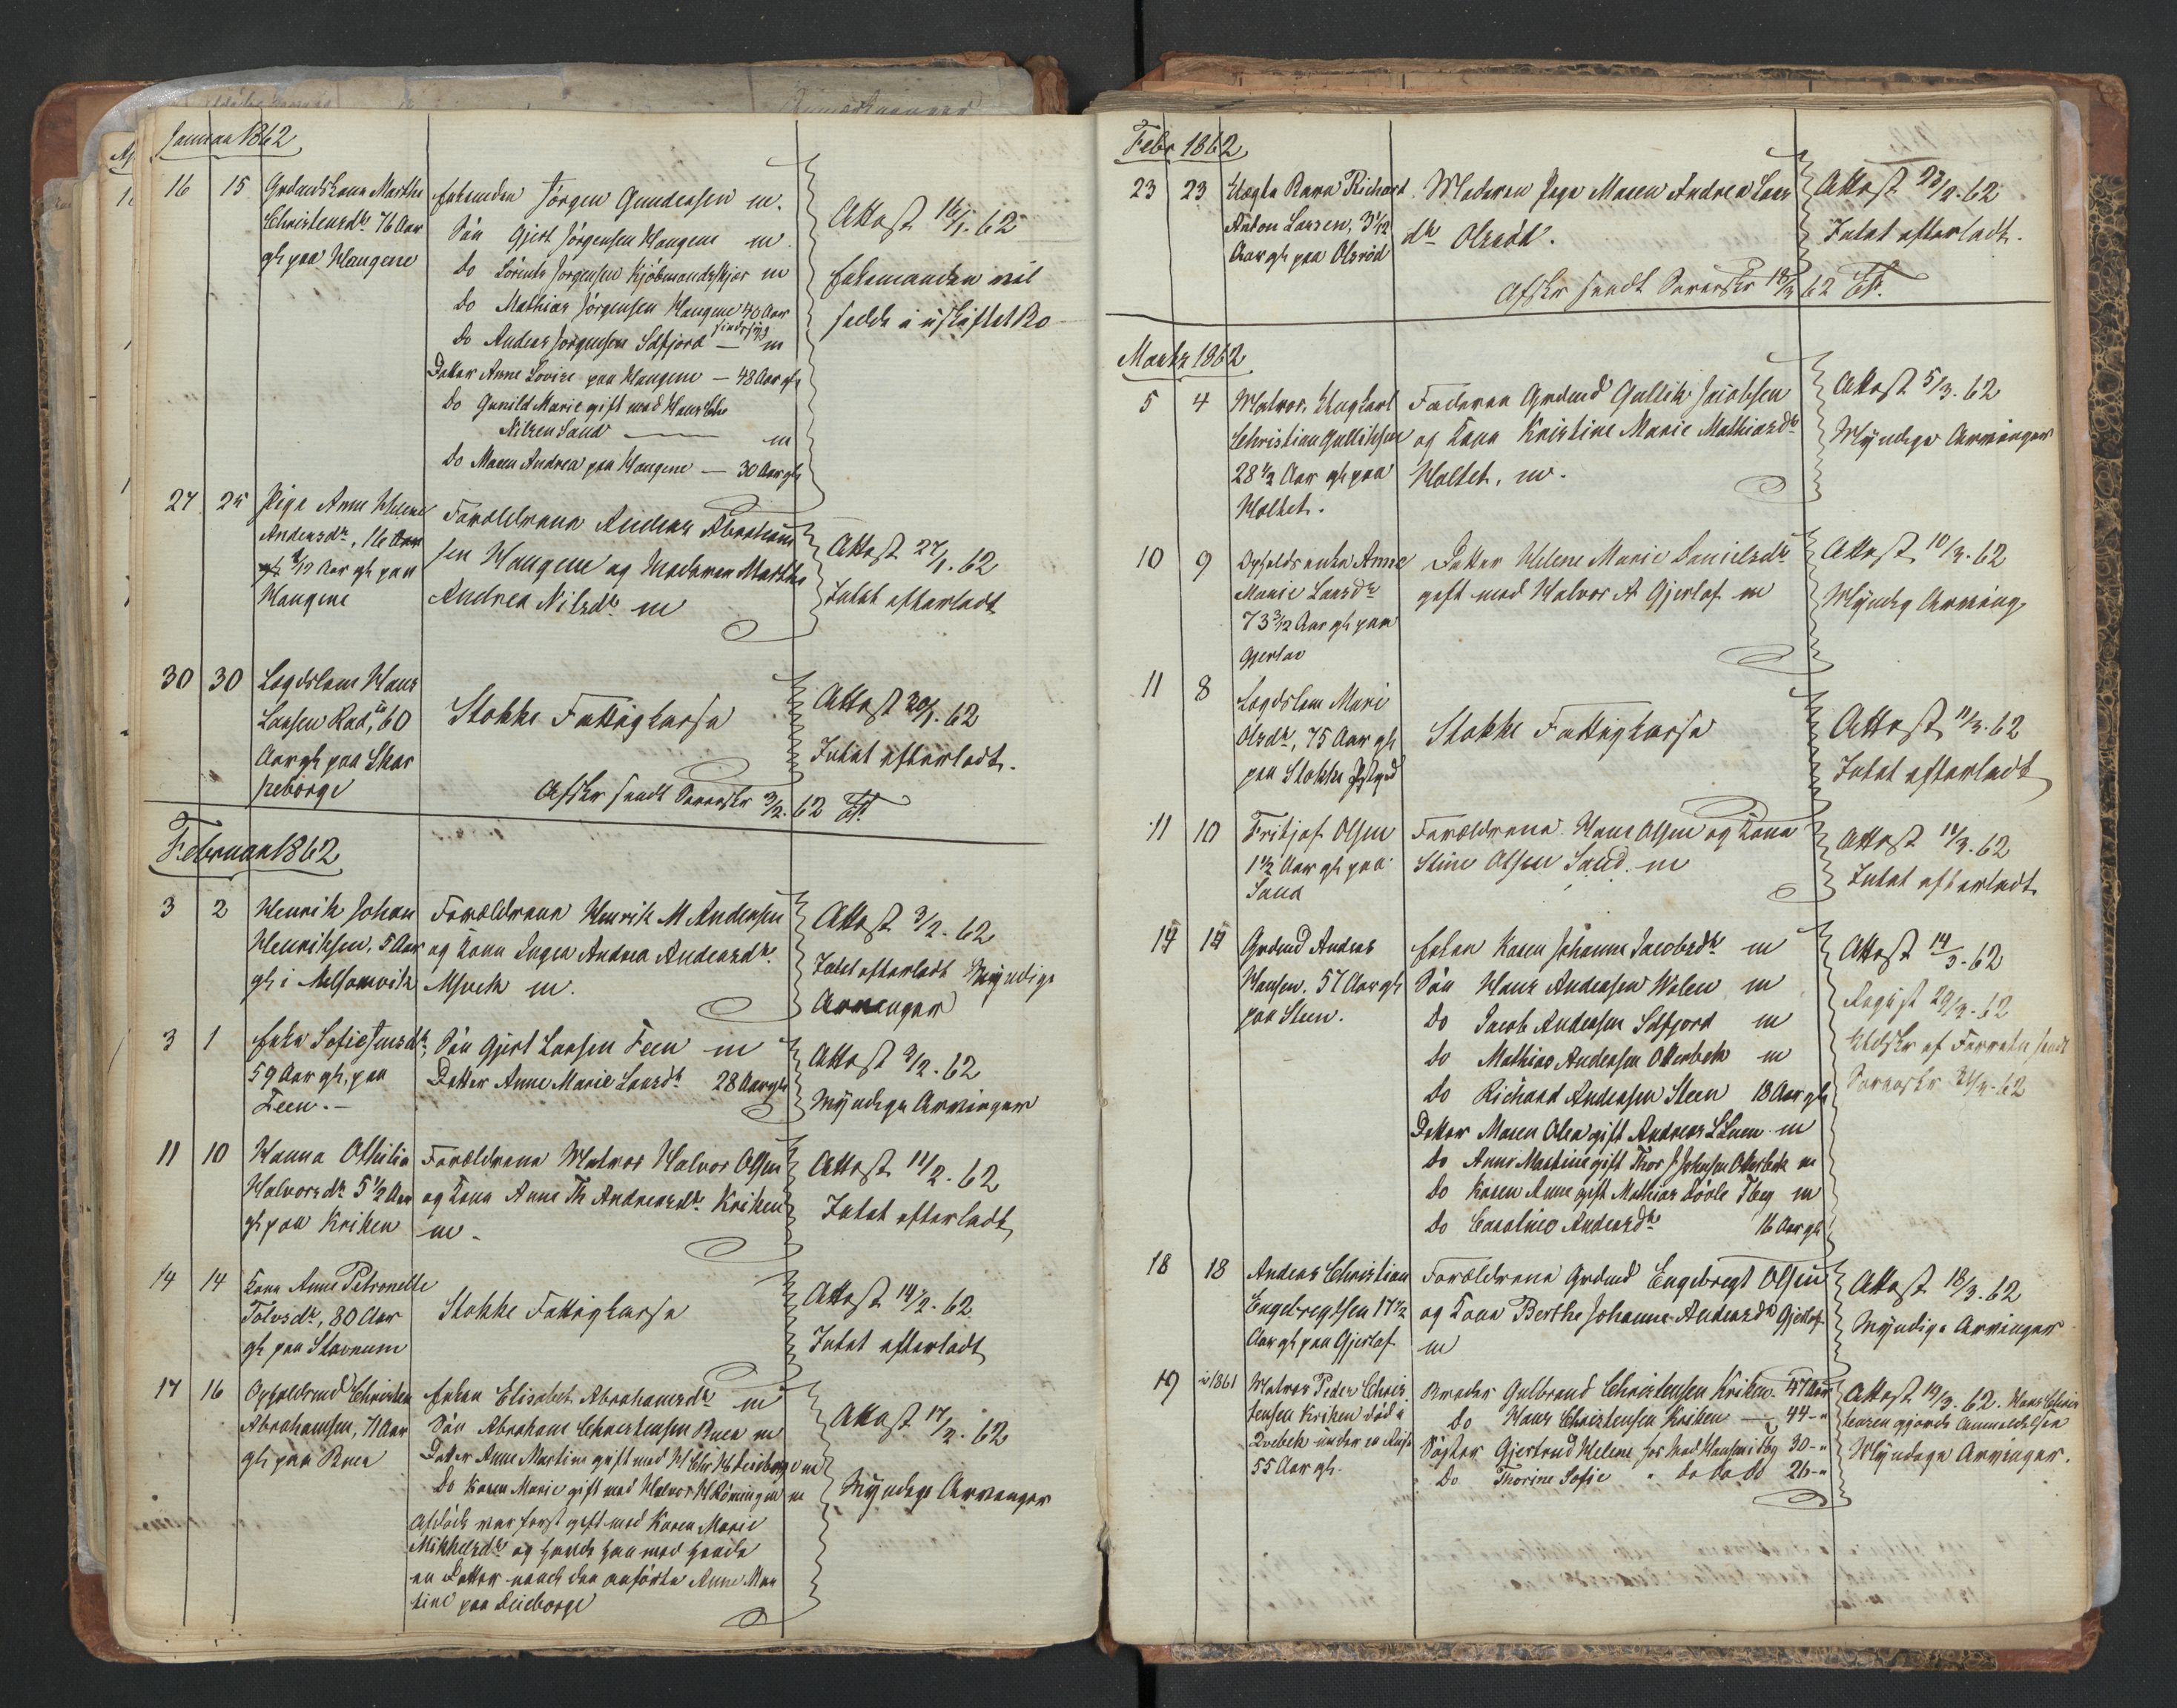 Januar 1862
16 15 Grdmdskone Marthe
Christensdtr. 76 Aar
gl. paa Haugene
Enkemden Jørgen Gundersen m.
Søn Gjert Jørgensen Haugene m.
Do Sørents Jørgensen Kjøbmandskjær m
Do Mathias Jørgensen Haugene 40 Aar
sindssyg
Do Anders Jørgensen Solfjord — m
Datter Anne Lovise paa Haugene — 48 Aar gl
Do Gunild Marie gift med Hans Chr
Nilsen Sand — m
Do Maren Andrea paa Haugene — 30 Aar gl
Attest 16/1. 62
Enkemanden vil
sidde i uskiftet Bo
27 25 Pige Anne Helene
Andersdr., 16
3/12 Aar gl. paa
Haugene
Forældrene Anders Abraham
sen Haugene og Moderen Marthe
Andrea Nilsdr. m
Attest 27/1. 62
Intet efterladt
30 30 Lægdslem Hans
Larsen Rad, 60
Aar gl. paa Skar
peborge
Stokke Fattigkasse
Attest 30/1. 62
Intet efterladt.
Afskr sendt Sorenskr 3/2. 62
Februar 1862
3 2 Henrik Johan
Henriksen, 5 Aar
gl. i Melsomvik
Forældrene Henrik M Andersen
og Kone Inger Andrea Andersdr.
Msvik m.
Attest 3/2. 62
Intet efterladt Myndige
Arvinger
3 1 Enke Sofie Jensdr,
59 Aar gl. paa
Feen. —
Søn Gjert Larsen Feen m
Datter Anne Marie Larsdr 28 Aar gl
Attest 3/2. 62
Myndige Arvinger
11 10 Hanna Othilia
Halvorsdr. 5 1/2 Aar
gl. paa Kriken
Forældrene Matros Halvor Olsen
og Kone Anne Th Andreasdr. Kriken
m.
Attest 11/2. 62
Intet efterladt
14 14 Kone Anne Petronelle
Tolvsdr, 80 Aar
gl. paa Stavnum
Stokke Fattigkasse
Attest 14/2. 62
Intet efterladt
17 16 Opholdsmd Christen
Abrahamsen, 71 Aar
gl. paa Ruen
Enken Elisabet Abrahamsdr m
Søn Abraham Christensen Ruen m
Datter Anne Martine gift med H Chr H Leieborge m
Do Karen Marie gift med Halvor H Rømingen m
Afdøde var først gift med Karen Marie
Mikkelsdr og havde han med hende
en Datter nemlig den anførte Anne Mar
tine paa Leieborge
Attest 17/2. 62
Myndige Arvinger
Febr 1862
23 23 Uægte Barn Richard
Anton Larsen, 3 1/12
Aar gl. paa Olsrød
Moderen Pige Maren Andrea Lars
dr Olsrød.
Attest 23/2. 62
Intet efterladt.
Afskr sendt Sorenskr 18/3 62
Marts 1862
5 4 Matros, Ungkarl
Christian Gulliksen
28 1/2 Aar gl paa
Holtet.
Faderen Grdmd Gullik Jacobsen
og Kone Kristine Marie Mathiasdr
Holtet, m.
Attest 5/3. 62
Myndige Arvinger
10 9 Opholdsenke Anne
Marie Larsdr
73 3/12 Aar gl. paa
Gjerlav
Datter Helene Marie Danielsdr
gift med Halvor A Gjerlaf m
Attest 10/3. 62
Myndig Arving
11 8 Lægdslem Mari
Olsdr, 75 Aar gl
paa Stokke Pstgrd
Stokke Fattigkasse
Attest 11/3. 62
Intet efterladt
11 10 Fritjof Olsen
1 1/2 Aar gl paa
Sand
Forældrene Hans Olsen og Kone
Stine Olsen Sand. m
Attest 11/3. 62
Intet efterladt
14 14 Grdmd Anders
Hansen. 57 Aar gl
paa Steen.
Enken Karen Johanne Jacobsdr m
Søn Hans Andersen Walen m
Do Jacob Andersen Solfjord m
Do Mathias Andersen Otterbek m
Do Richard Andersen Steen 18 Aar gl
Datter Maren Olea gift Andreas m
Do Anne Martine gift Thor J Johnsen Otterbek m
Do Karen Anne gift Mathias Tbg m
Do Caroline Andersdr 16 Aar gl
Attest 14/3. 62
Regist 29/3. 62
Udskr af Forretn sendt
Sorenskr 31/3. 62
18 18 Anders Christian
Engebregtsen 17 1/2
Aar gl paa Gjerlaf
Forældrene Grdmd Engebregt Olsen
og Kone Berthe Johanne Andersdr Gjerlaf
m
Attest 18/3. 62
Myndige Arvinger
19 i 1861 Matros Peder Chris
tensen Kriken død i
Qvebek under en Reise
55 Aar gl.
Broder Gulbrand Christensen Kriken — 47 Aar
Do Hans Christensen Kriken — 44 - "
Søster Gjertrud Helene hos Hansen i Tbg 30 - "
Do Thorine Sofie " do do do 26 - "
Attest 19/3. 62. Hans Chris
tensen gjorde Anmeldelsen
Myndige Arvinger.